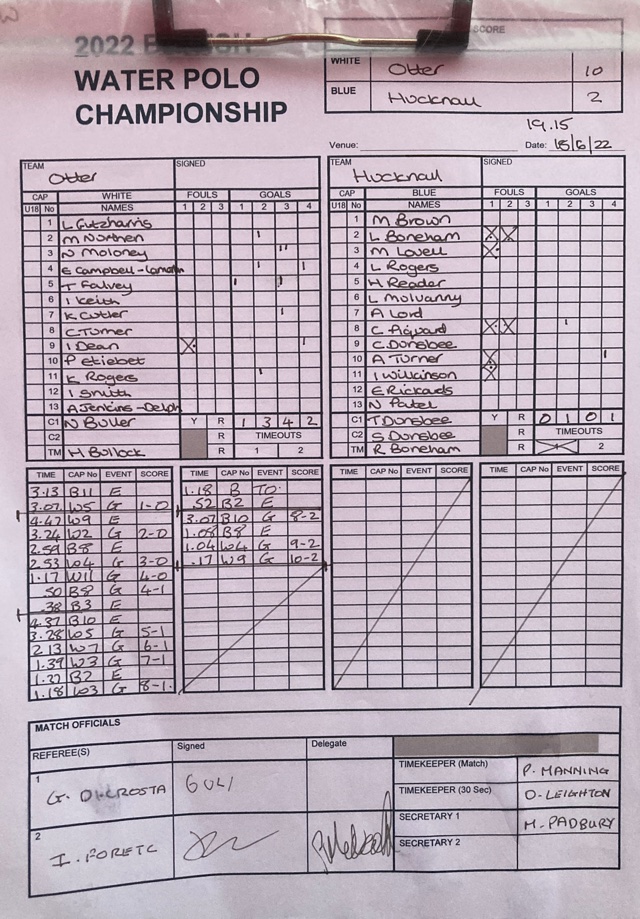 2022
SCORE
WATER POLO
CHAMPIONSHIP
WHITE Otter 10
BLUE Hucknall 2
19.15
Venue: Date: 15/6/22
TEAM Otter SIGNED
CAP WHITE FOULS GOALS
U18 No NAMES 1 2 3 1 2 3 4
1 L Gutzharris
2 M Northen I
3 N Moloney II
4 E Campbell-Lamerton I I
5 T Falvey I I
6 I Keith
7 K Cutler I
8 C Turner
9 I Dean X I
10 P Etiebet
11 K Rogers I
12 I Smith
13 A Jenkins-Delph
C1 N Buller Y R 1 3 4 2
C2 R TIMEOUTS
TM H Bullock R 1 2
TEAM Hucknall SIGNED
CAP BLUE FOULS GOALS
U18 No NAMES 1 2 3 1 2 3 4
1 M Brown
2 L Boneham X X
3 M Lovell X
4 L Rogers
5 H Reader
6 L Molvanny
7 A Lord
8 C Aquard X X I
9 C Dunsbee
10 A Turner X I
11 I Wilkinson X
12 E Rickards
13 N Patel
C1 T Dunsbee Y R 0 1 0 1
C2 S Dunsbee R TIMEOUTS
TM R Boneham R 1 2
TIME CAP No EVENT SCORE
3.13 B11 E
3.07 W5 G 1-0
4.47 W9 E
3.24 W2 G 2-0
2.59 B8 E
2.53 W4 G 3-0
1.17 W11 G 4-0
.50 B8 G 4-1
.38 B3 E
4.37 B10 E
3.28 W5 G 5-1
2.13 W7 G 6-1
1.39 W3 G 7-1
1.27 B2 E
1.18 W3 G 8-1
TIME CAP No EVENT SCORE
1.18 B TO
.52 B2 E
3.07 B10 G 8-2
1.08 B8 E
1.04 W4 G 9-2
.17 W9 G 10-2
TIME CAP No EVENT SCORE
TIME CAP No EVENT SCORE
MATCH OFFICIALS
REFEREE(S) Signed Delegate
1 G. DICROSTA GULI
2 I. FORETC
TIMEKEEPER (Match) P. MANNING
TIMEKEEPER (30 Sec) D. LEIGHTON
SECRETARY 1 M. PADBURY
SECRETARY 2